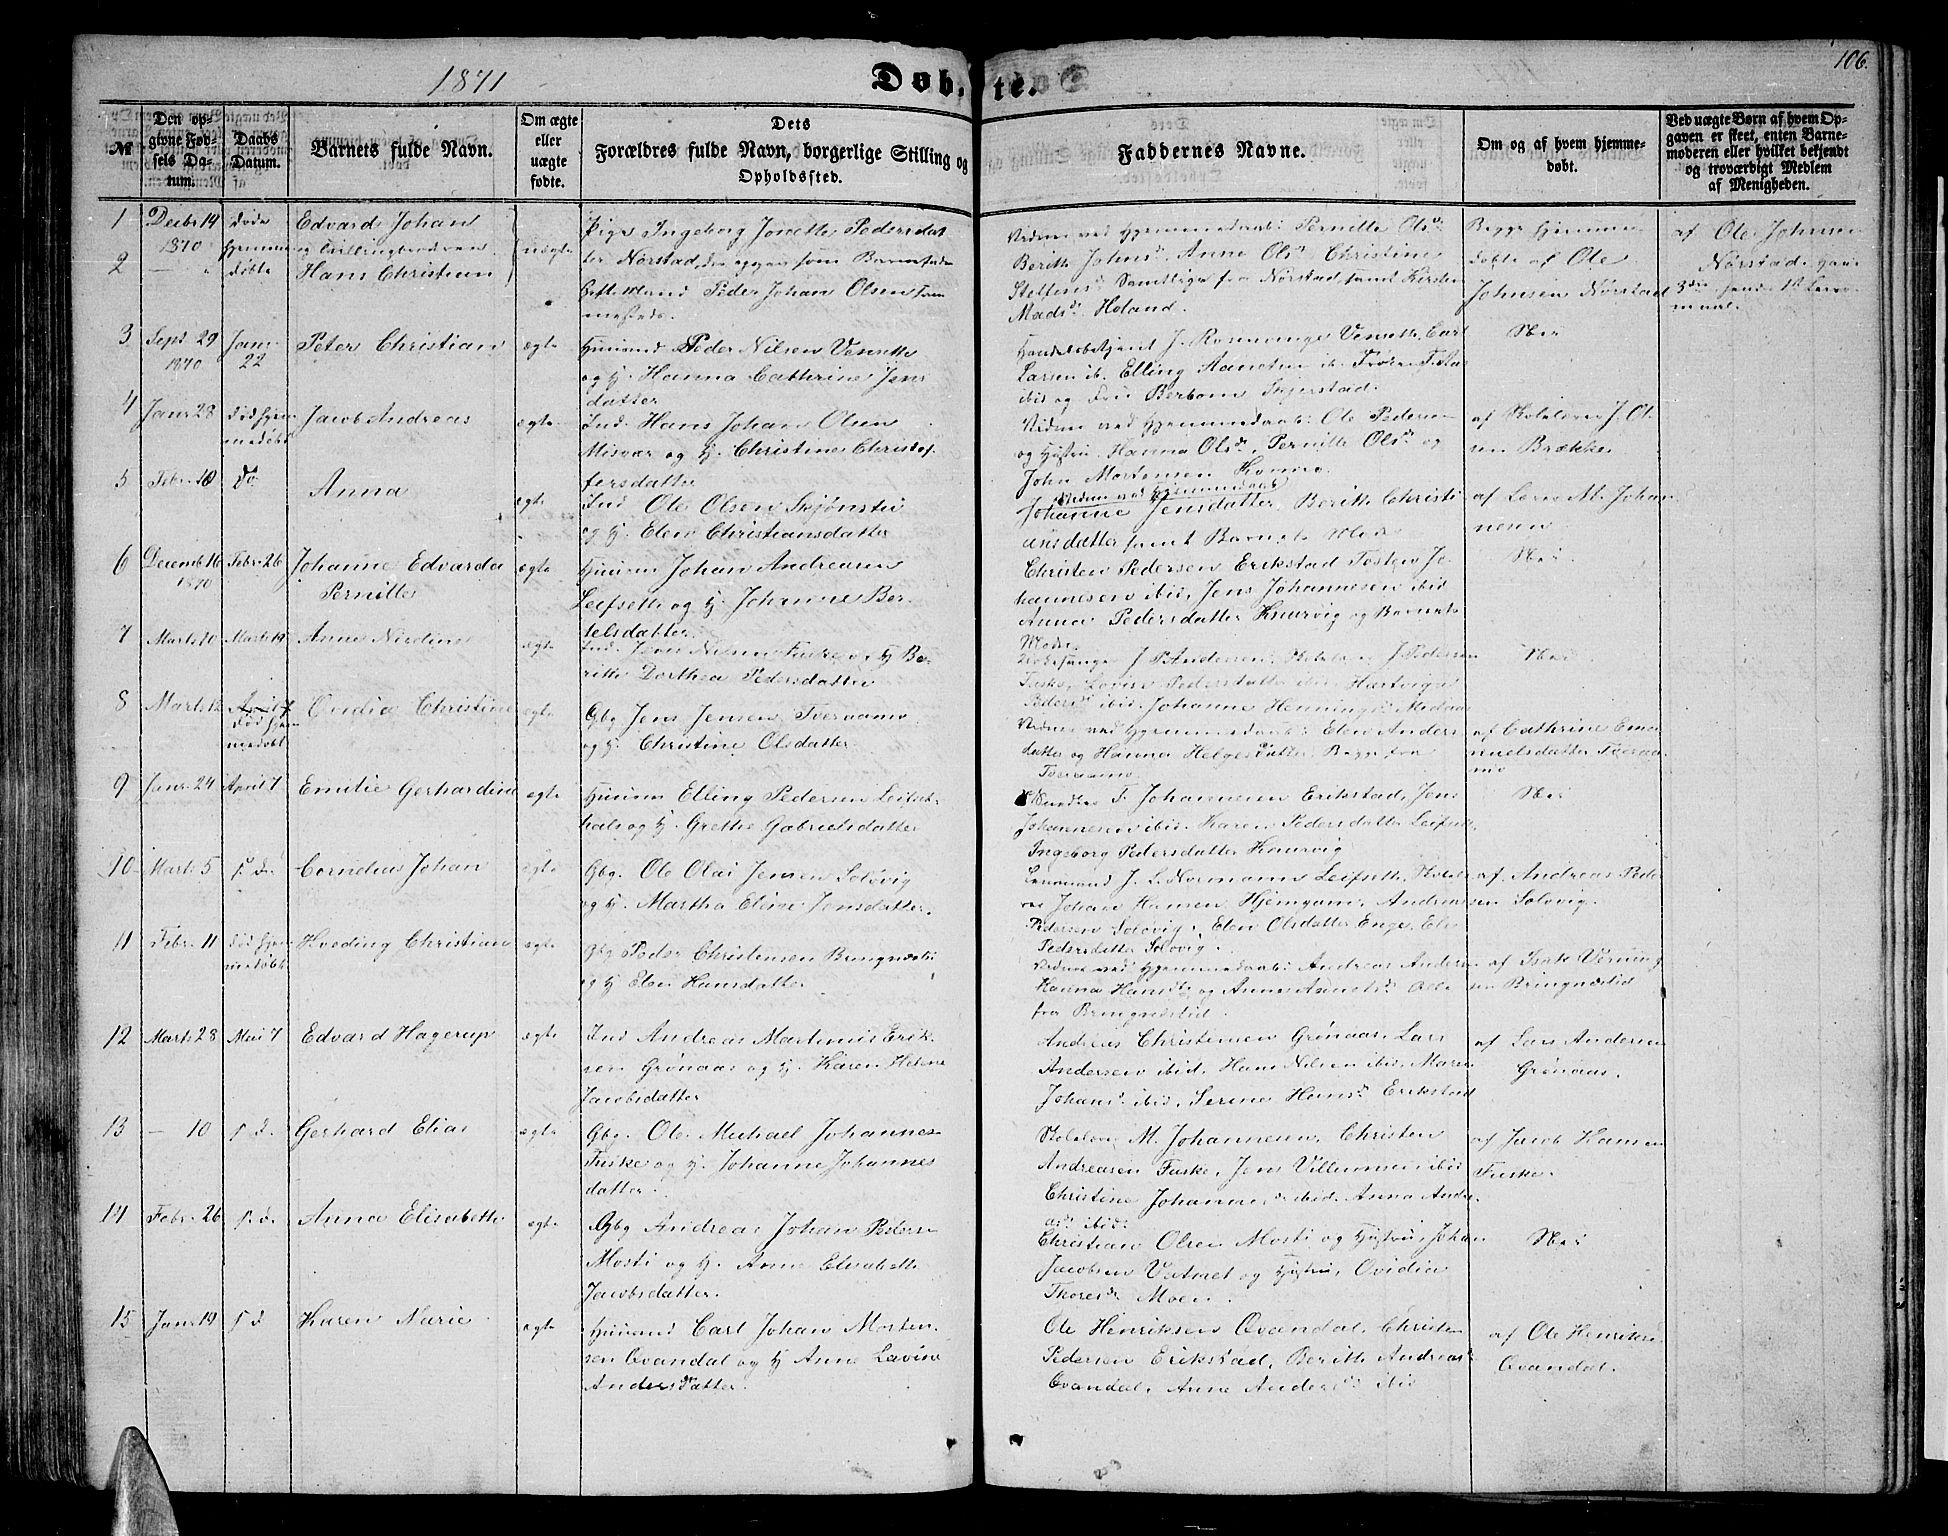 1871
Døbte.
106.
№
Den opgivne Fødsels Datum.
Daabs Datum.
Barnets fulde Navn.
Om ægte eller uægte fødte.
Dets Forældres fulde Navn, borgerlige Stilling og Opholdssted.
Faddernes Navne.
Om og af hvem hjemmedøbt.
Ved uægte Børn af hvem Opgaven er skeet, enten Barnemoderen eller hvilket bekjendt og troværdigt Medlem af Menigheden.
1 Decbr 14 1870 døde
Edvard Johan
og Tvillingbroderen
2 — " døbte
Hans Christian
uægte
Pige Ingeborg Jonette Pedersdat
ter Nørstad, som Barnefader
Gift Mand Peder Johan Olsen
Vidner ved Hjemmedaab: Pernille Olsd
Berith Johnsd. Anne Olsd Christine
Samtlige fra Nørstad, samt Kirsten
Madsd. Høland.
Begge hjemme
døbte af Ole
Johnsen Nørstad
af Ole Johnsen
Nørstad.
3 Sept 29 1870 Janr 22
Peter Christian
ægte
Huusmd Peder Nilsen Venset
og H. Hanna Cathrine Jens
datter
Handelsbetjent J. Rosenvinge Venset, Carl
Larsen ib. Elling
ibid og Fru Berbom Skjerstad.
Nei
4 Janr 28 død hjem
medøbt
Jacob Andreas
ægte
Ind. Hans Johan Olsen
Misvær og H. Christine Christof
fersdatter
Vidner ved Hjemmedaab: Ole Pedersen
og Hustru. Hanna Olsd, Pernille Olsd og
John Mortensen
af Skolelærer J. Ol
sen Brække
5 Febr 10 do
Anna
ægte
Ind Ole Olsen Skjønstu
og H. Elen Christiansdatter
Vidner ved Hjemmedaab
Johanne Jensdatter, Berith Christi
ansdatter samt Barnets Moder
af Lærer M. Johan
nesen
6 Decemb 16 1870 Febr 26
Johanne Edvarda
Pernille
ægte
Huusm Johan Andreasen
Leifseth og H. Johanne Ber
telsdatter
Christen Pedersen Erikstad Tosten Jo
hannesen ibid, Jens Johannesen ibid
Anna Pedersdatter Knarvig og Barnets
Moder
Nei
7 Marts 10 Marts 19
Anne
ægte
Ind. Jens Nilsen Fuske og H Be
rith Dorthea Pedersdatter
Kirkesanger J P Andersen, Skolelærer J. Pedersen
Fuske, Lovise Pedersdatter ibid, Hartvig
Pedersd ibid. Johanne Hennings
Nei
8 Marts 12 April 7
død hjem
medøbt
Ovidia Christine
ægte
Gbg Jens Jensen Tveraamo
og H Christine Olsdatter
Vidner ved Hjemmedaab: Elen Anders
datter og Hanna Helgesdatter Begge fra
Tveraamo
af Cathrine Ema
nuelsdatter Tveraa
mo
9 Janr 24 April 7
Emilie Gerhardine
ægte
Huusm Elling Pedersen Leifset
hals og H. Grethe Gabrielsdatter
T. Johannesen Erikstad, Jens
Johannesen ibid. Karen Pedersdatter Leifset
Ingeborg Pedersdatter Knarvig
Nei
10 Marts 5 s. d.
Cornelius Johan
ægte
Gbg. Ole Olai Jensen Soløvig
og H. Martha Elise Jensdatter.
Lensmand J. L. Normann Leifseth, Skolelæ
rer Johan Hansen Hjemgam, Andreas
Pedersen Soløvig, Elen Olsdatter Enge, Elis
Pedersdatter Soløvig.
af Andreas Peder
sen Solovig.
11 Febr. 11 død hjem
medøbt
Hveding Christian
ægte
Gbg Peder Christensen Bringsnæstid
og H Elen Hansdatter
Vidner ved Hjemmedaab: Andreas Andersen
Hanna Hansd og Anne Alle
fra Bringsnæstid.
af
sen Bringnæstid
12 Marts 28 Mai 7
Edvard Hagerup
ægte
Ind Andreas Martinus Erik
sen Grønaas og H. Karen Helene
Jacobsdatter
Andreas Christensen Grønaas, Lars
Andersen ibid, Hans Nilsen ibid, Maren
Johansd. ibid, Serina Hansd Erikstad
af Lars Andersen
Grønaas.
13 — 10 s. d.
Gerhard Elias
ægte
Gbg. Ole Michael Johannes
Fuske og H. Johanne Johannes
datter.
Skolelærer M. Johannesen, Christen
Andreasen Fuske, Jens Villumsen ibid
Christine Johannesd ibid. Anna Andre
asd ibid.
af Jacob Hansen
Fuske.
14 Febr. 26 s. d.
Anna Elisabeth
ægte
Gbg Andreas Johan Peders
Mosti og H. Anne Elisabeth
Jacobsdatter.
Christian Olsen Mosti og Hustru, Johan
Jacobsen Vatnet og Hustru, Ovidia
Thoresd Moen.
Nei
15 Janr 19 s d
Karen Marie
ægte
Huusmd Carl Johan Morten
sen Qvandal og H Anne Lavine
Andersdatter.
Ole Henriksen Qvandal, Christen
Pedersen Erikstad, Berith Andreasd
Qvandal, Anne Andersd ibid
af Ole Henriksen
Qvandal.